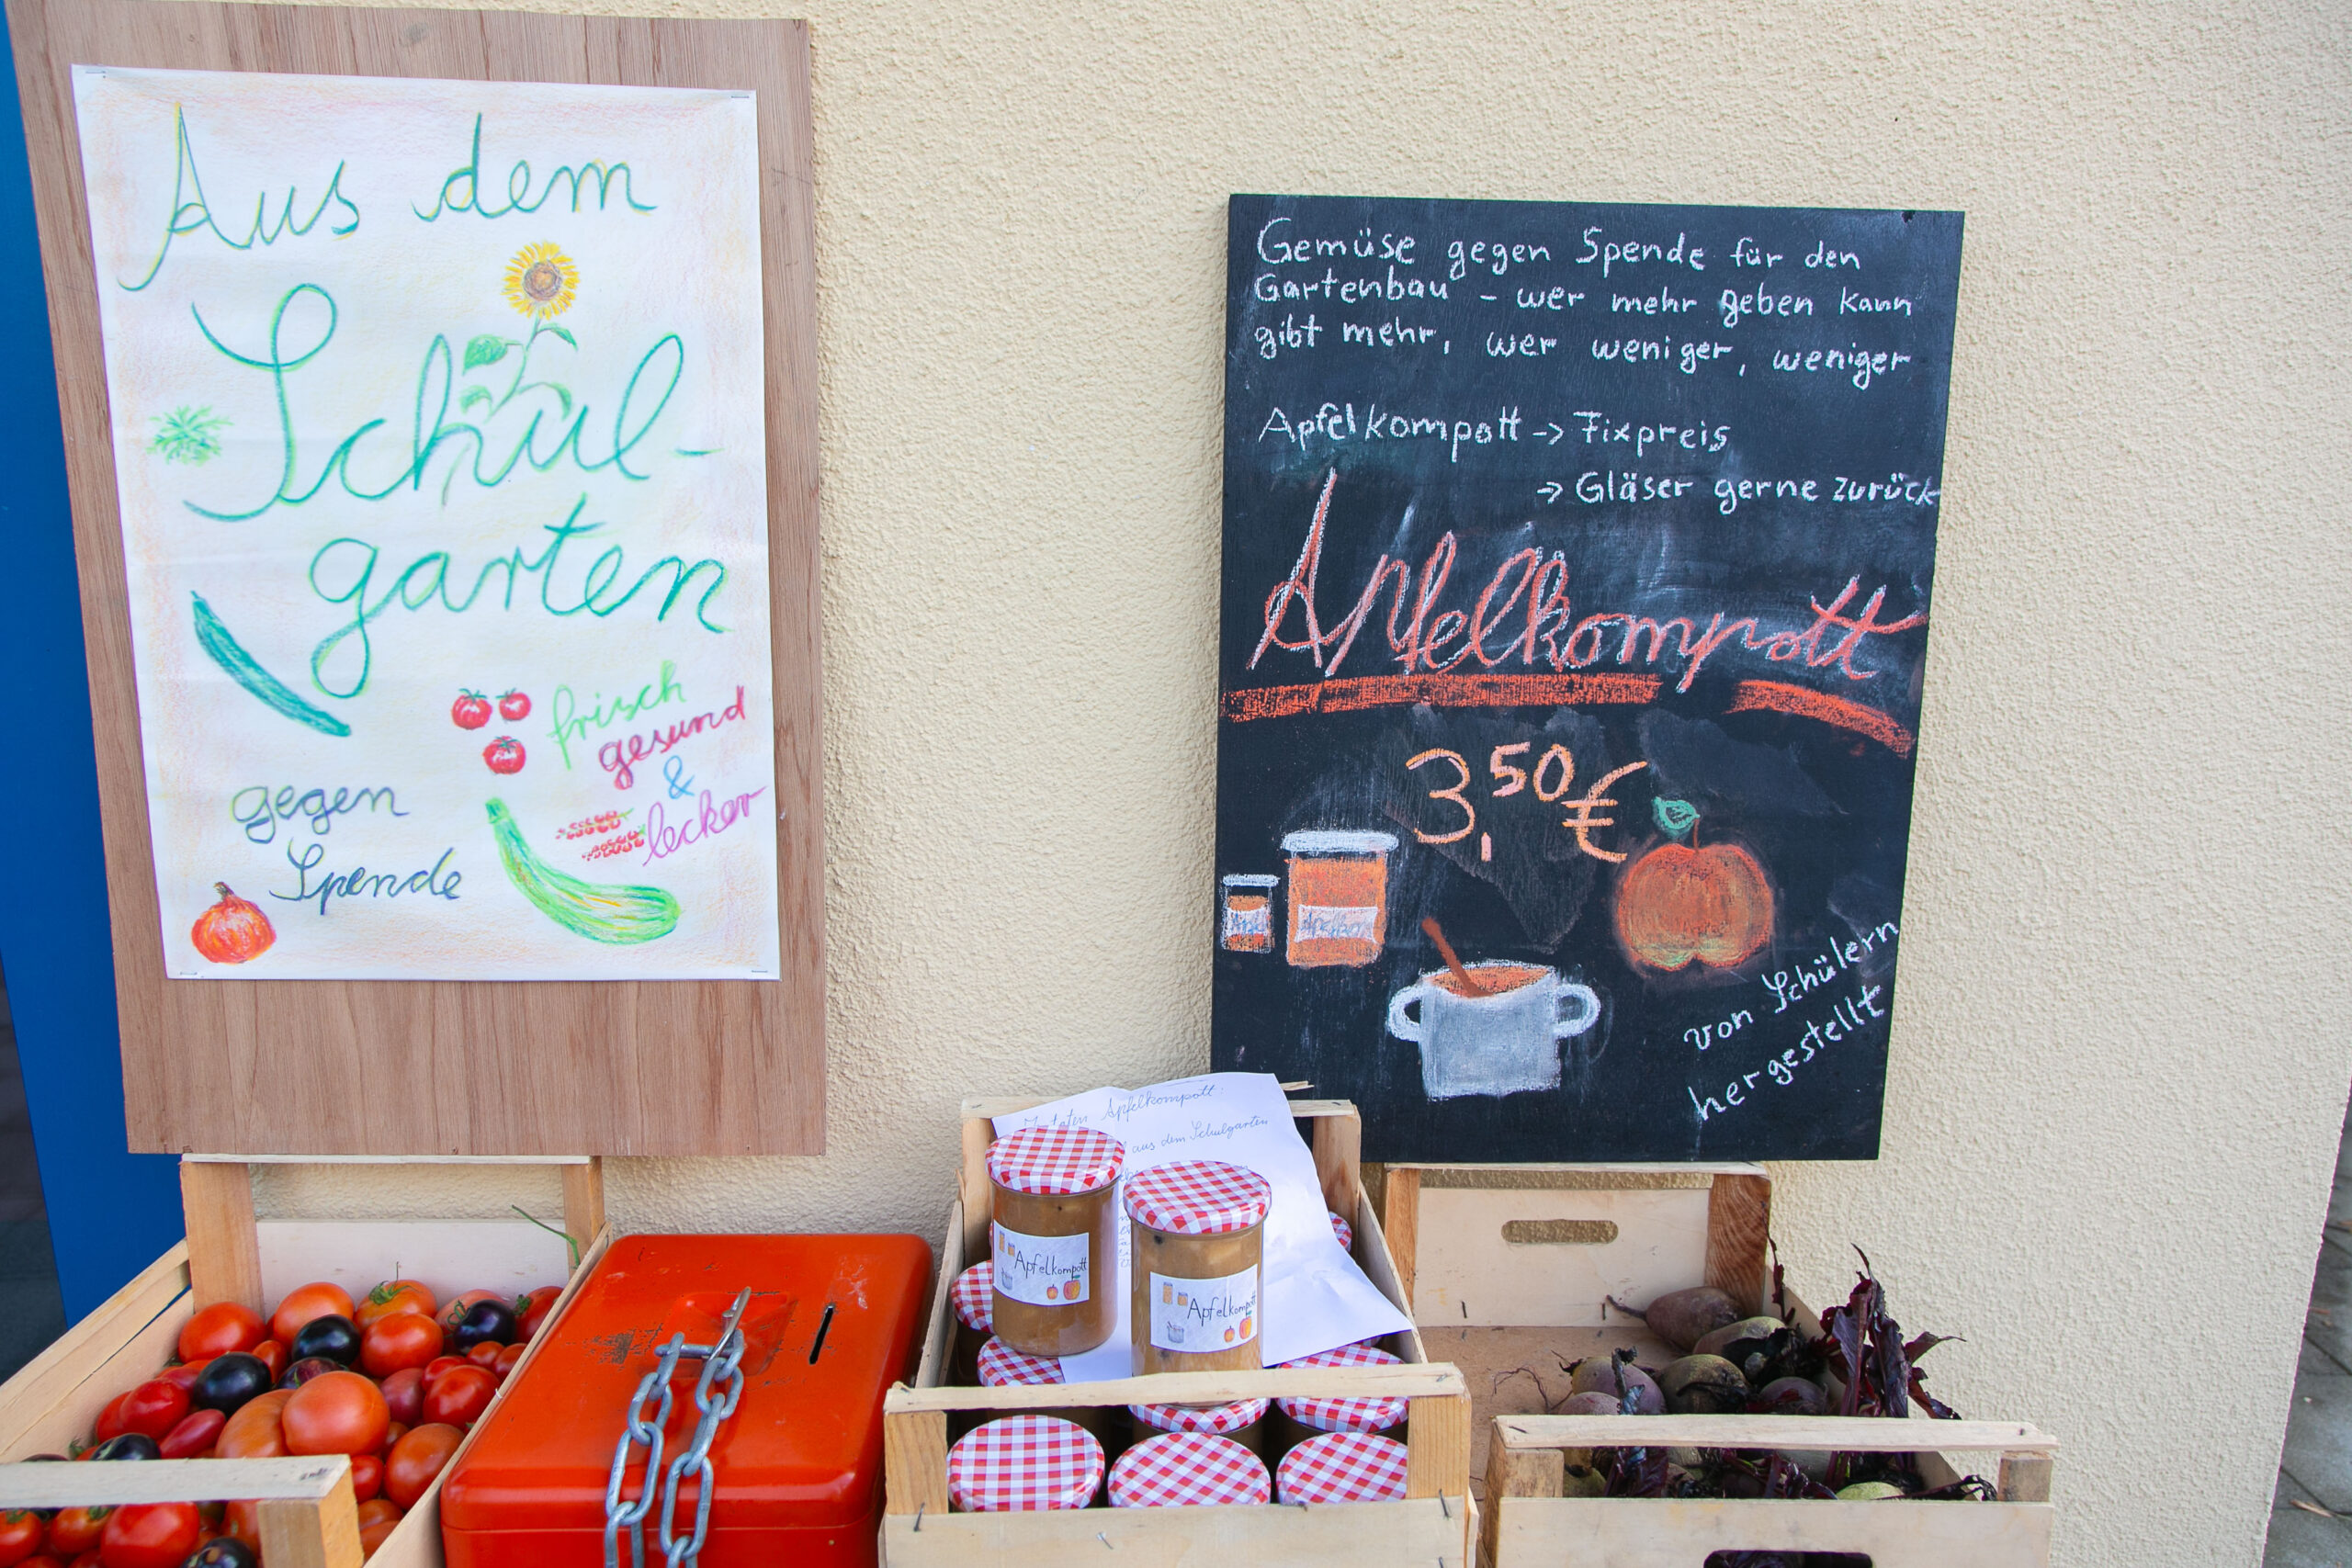 Aus dem
Schul-
garten
frisch
gesund
&
lecker
gegen
Spende
Gemüse gegen Spende für den
Gartenbau - wer mehr geben kann
gibt mehr, wer weniger, weniger
Apfelkompott -> Fixpreis
-> Gläser gerne zurück
Apfelkompott
3,50€
von Schülern
hergestellt
Zutaten Apfelkompott:
aus dem Schulgarten
Apfelkompott
Apfelkompott